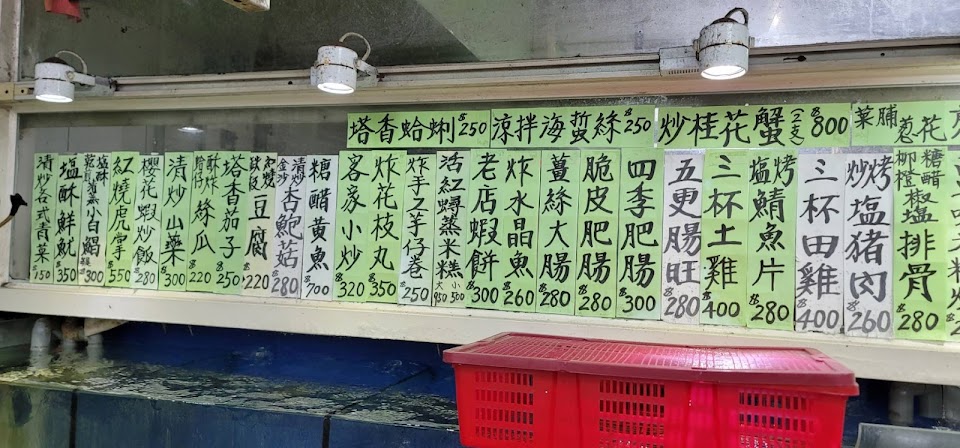 塔香蛤蜊250
涼拌海蜇絲250
炒桂花蟹(一支)800
菜脯 蔥花
清炒各式青菜150
塩酥鮮魷350
小白鯧300
紅燒虎掌550
櫻花蝦炒飯280
清炒山藥300
絲瓜220
塔香茄子250
豆腐220
清炒 金沙 杏鮑菇280
糖醋黃魚700
客家小炒320
炸花枝丸350
炸芋仔卷250
活紅蟳蒸米糕 大950 小500
老店蝦餅300
炸水晶魚260
薑絲大腸280
脆皮肥腸280
四季肥腸300
五更腸旺280
三杯土雞400
塩烤鯖魚片280
三杯田雞400
炒烤塩猪肉260
糖醋 椒塩 柳橙 排骨280